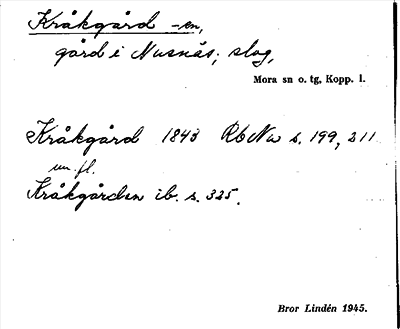 Kråkgård -en,
gård i Nusnäs; slog,
Mora sn o. tg, Kopp. l.
Kråkgård 1843 RbNu s. 199, 211
m. fl.
Kråkgården ib. s. 325.
Bror Lindén 1945.